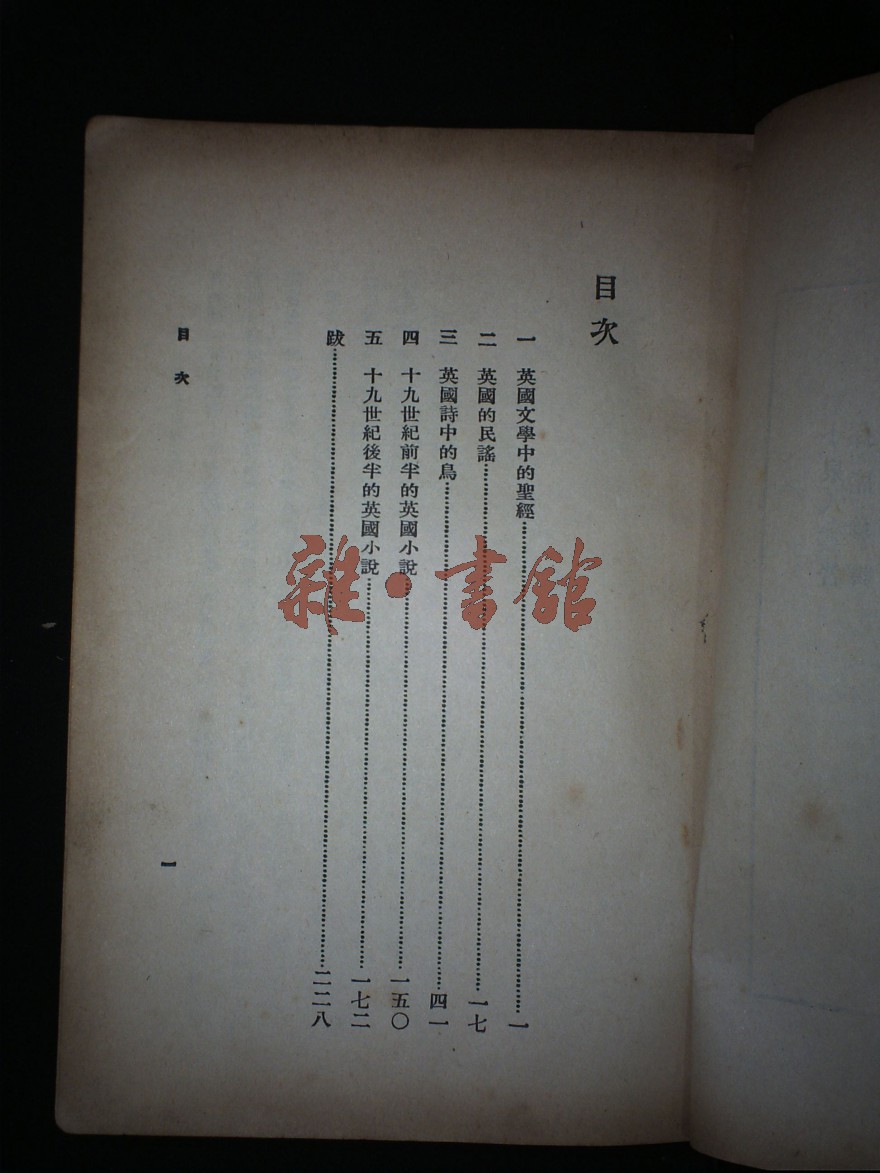 目次
一 英國文學中的聖經……一
二 英國的民謠……一七
三 英國詩中的鳥……四一
四 十九世紀前半的英國小說……一五〇
五 十九世紀後半的英國小說……一七二
跋……二二八
目次
一
雜·書館